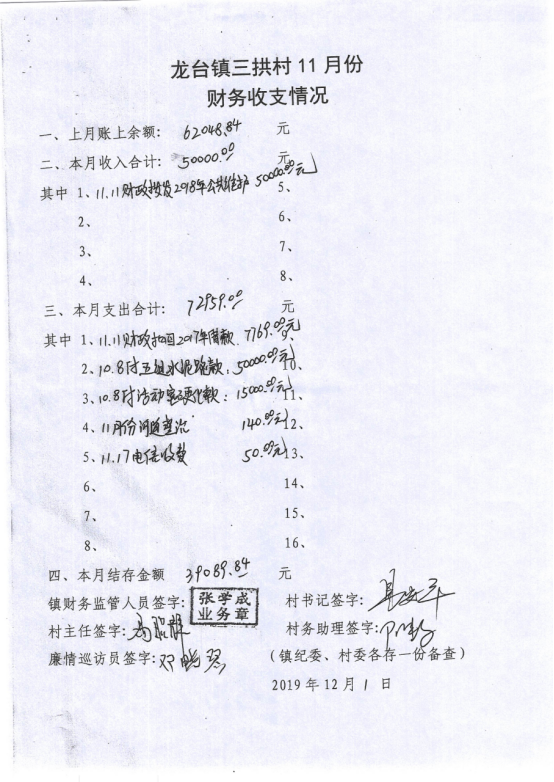 龙台镇三拱村11月份
财务收支情况
一、上月账上余额: 62048.84 元
二、本月收入合计: 50000.00 元
其中 1、11.11财政拨2018年公共 50000.00元 5、
2、 6、
3、 7、
4、 8、
三、本月支出合计: 72959.00 元
其中 1、11.11财政扣回2017年借款 7769.00元 9、
2、10.8付五组水泥路款 50000.00元 10、
3、10.8付活动室款: 15000.00元 11、
4、11月份 140.00元 12、
5、11.17电信收费 50.00元 13、
6、 14、
7、 15、
8、 16、
四、本月结存金额 39089.84 元
镇财务监管人员签字: 张学成
业务章
村书记签字:
村主任签字:
村务助理签字:
廉情巡访员签字: 邓
(镇纪委、村委各存一份备查)
2019年12月1日